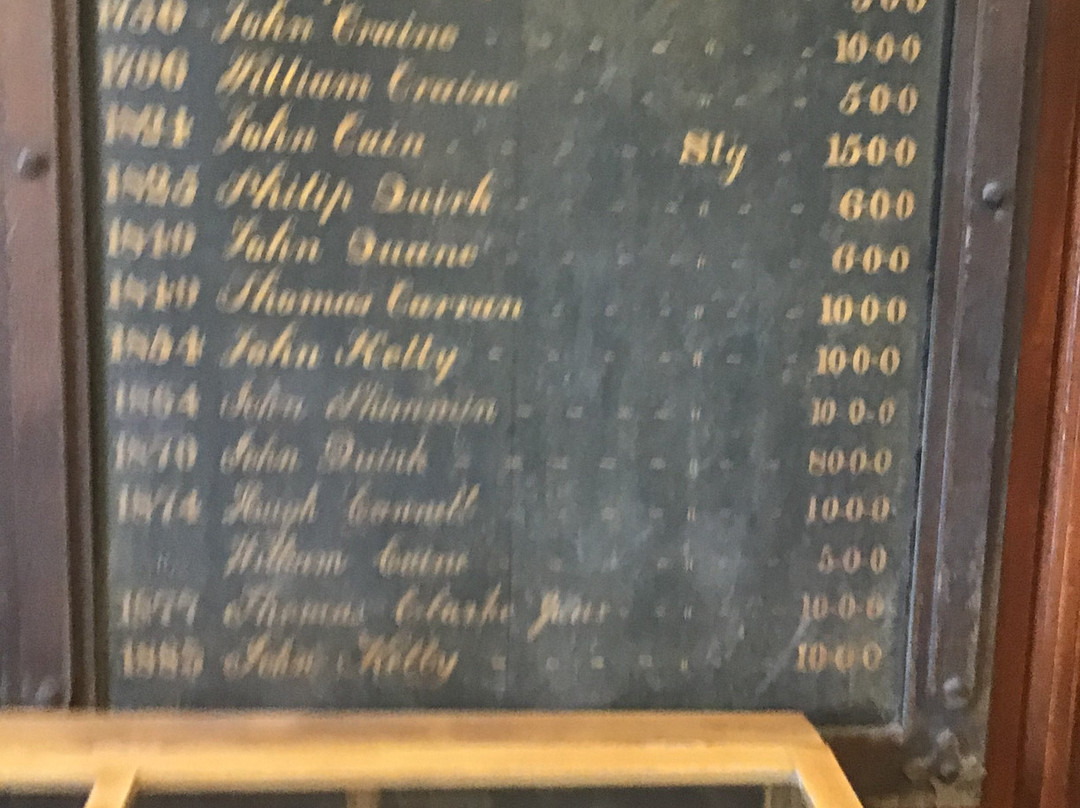 1750 John Craine " " " " 10·0·0
1796 William Craine " " " " 5·0·0
1824 John Cain " " " Stg " 15·0·0
1825 Philip Quirk " " " " 6·0·0
1840 John Quane " " " " 6·0·0
1840 Thomas Curran " " " " 10·0·0
1854 John Kelly " " " " 10·0·0
1864 John Shimmin " " " " 10·0·0
1870 John Quirk " " " " 80·0·0
1874 Hugh Cannell " " " 10·0·0
" William Caine " " " 5·0·0
1877 Thomas Clarke " " 10·0·0
John Kelly " " " " 10·0·0